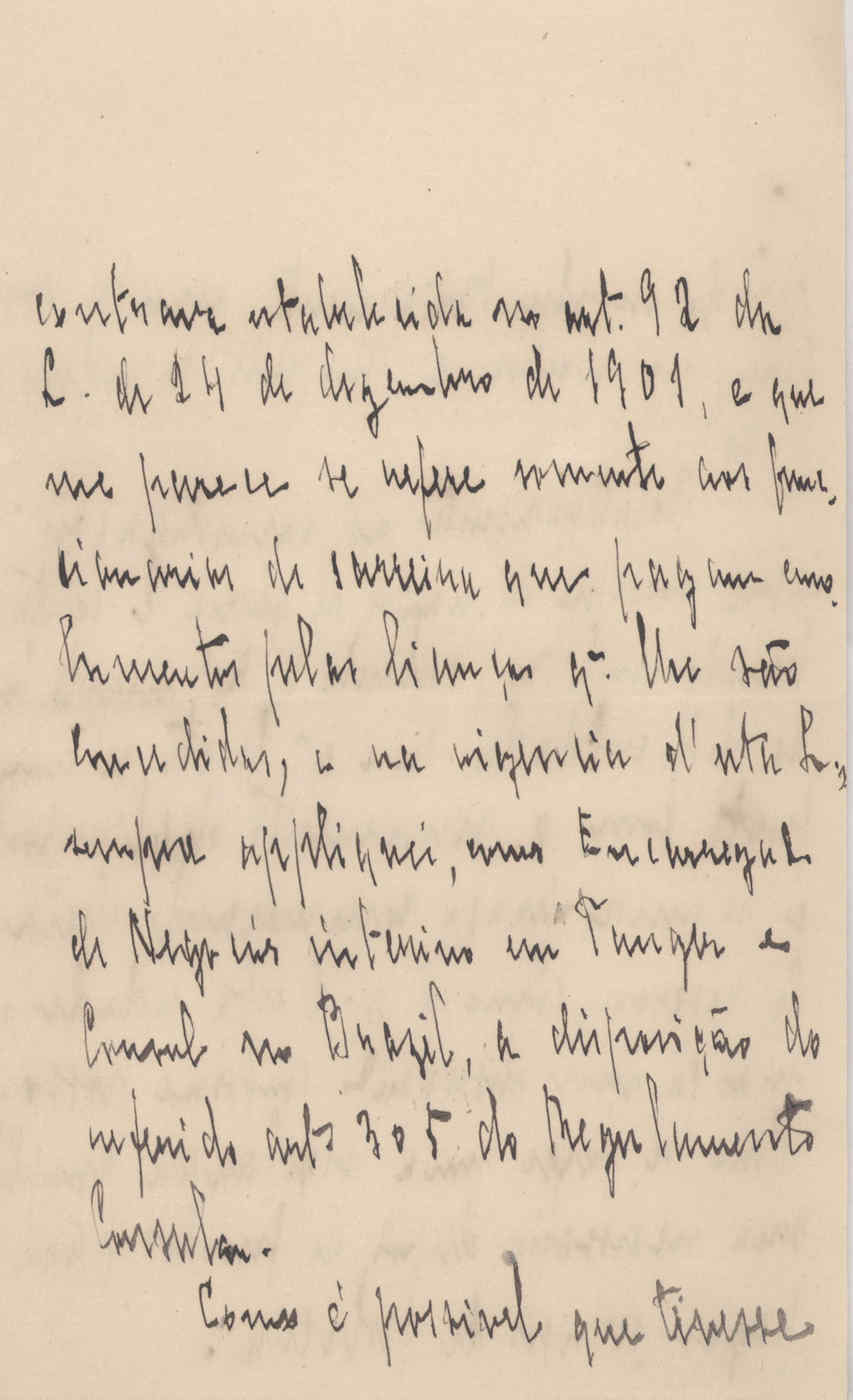 contraria estabelecida no art. 92 da
L. de 24 de dezembro de 1901, e que
me parece se refere somente aos func-
cionarios de carreira que pagam emo-
lumentos pelas licenças q. lhe são
concedidas; e na vigencia d'esta Lei
sempre appliquei, como Encarregado
de Negocios interino em Tanger e
Consul no Brazil, a disposição do
referido artº 305 do Regulamento
Consular.
Como é possivel que tivesse